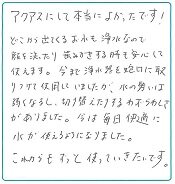 アクアスにして本当によかったです!
どこから出てくるお水も浄水なので
顔を洗ったり歯みがきする時も安心して
使えます。今まで浄水器を蛇口に取
りつけて使用していましたが、水の勢いは
弱くなるし、切り替えたりするわずらわしさ
がありました。今は毎日快適に
水が使えるようになりました。
これからもずっと使っていきたいです。